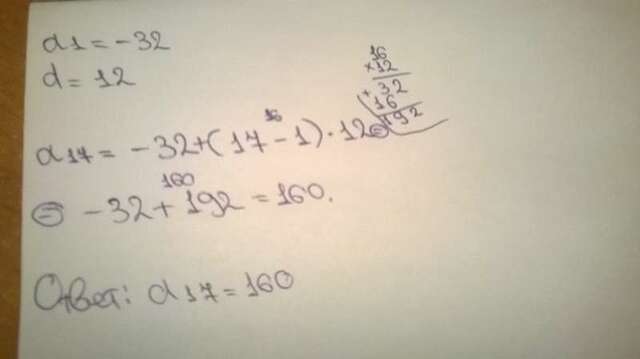 a1 = -32
d = 12
16
×12
+ 32
16
192
16
a17 = -32+(17-1)·12=
160
= -32+192=160.
Ответ: a17=160